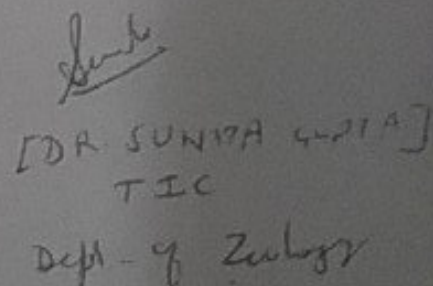 [DR SUNITA GUPTA]
TIC
Dept. of Zoology